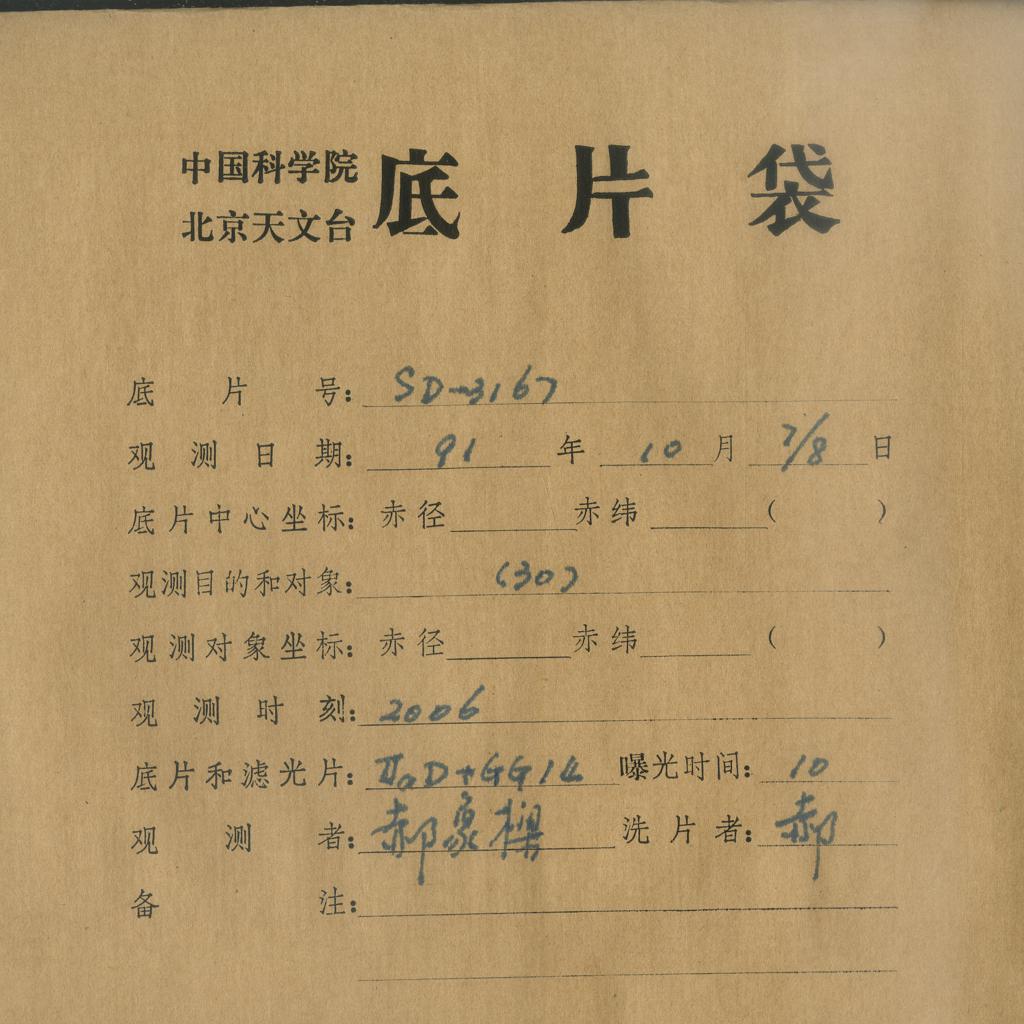 中国科学院
北京天文台
底片袋
底片号: SD-3167
观测日期: 91年10月7/8日
底片中心坐标: 赤径 赤纬 ( )
观测目的和对象: (30)
观测对象坐标: 赤径 赤纬 ( )
观测时刻: 2006
底片和滤光片: IIaD+GG14 曝光时间: 10
观测者: 郝象樑 洗片者: 郝
备注: